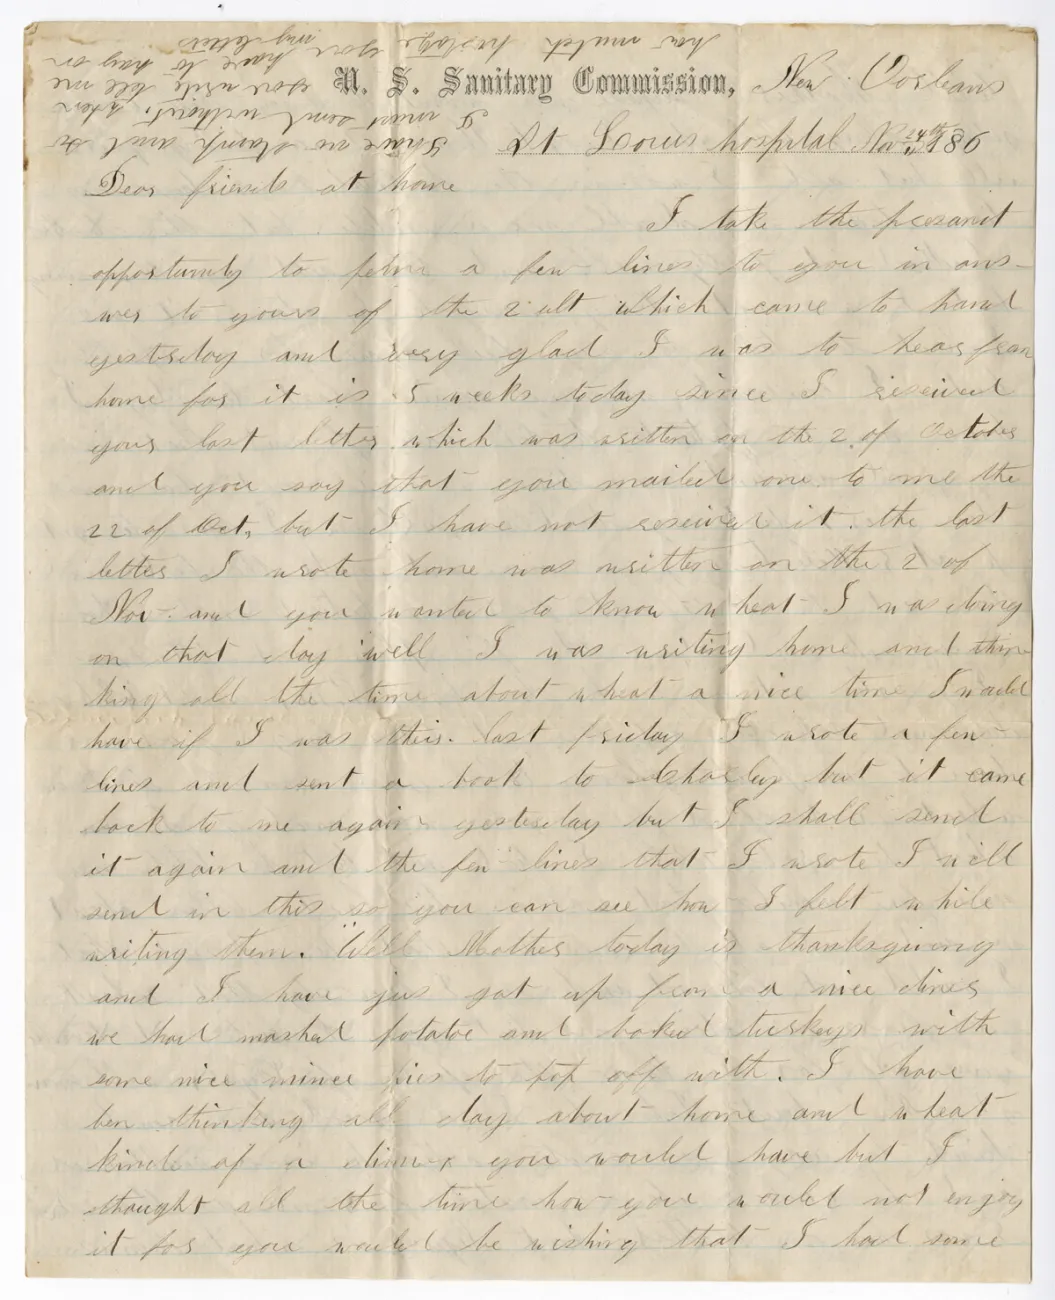 U. S. Sanitary Commission, New Orleans
St Louis hospital Nov 24th 186
Dear friends at home
I take the presant
opportunity to pehn a few lines to you in ans-
wer to yours of the 2 ult which came to hand
yesterday and very glad I was to hear from
home for it is 5 weeks today since I reseived
your last letter which was written on the 2 of October
and you say that you mailed one to me the
22 of Oct, but I have not reseived it. the last
letter I wrote home was written on the 2 of
Nov. and you wanted to know wheat I was doing
on that day well I was writing home and thin-
king all the time about wheat a nice time I would
have if I was thir. last friday I wrote a few
lines and sent a book to Charley but it came
back to me again yesterday but I shall send
it again and the few lines that I wrote I will
send in this so you can see how I felt while
writing them. Well Mother today is thanksgiving
and I have jus got up from a nice diner
we had mashed potatoe and baked turkeys with
some nice mince pies to top off with. I have
ben thinking all day about home and wheat
kinde of a dinner you would have but I
thought all the time how you would not enjoy
it for you would be wishing that I had some
I have no stamps and so
I must send without. when
you write tell me
how mutch postage you have to pay on
my letters